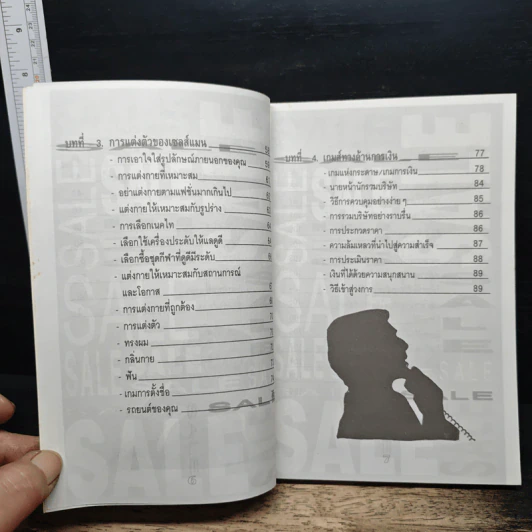 บทที่ 3. การแต่งตัวของเซลส์แมน
- การเอาใจใส่รูปลักษณ์ภายนอกของคุณ
- การแต่งกายที่เหมาะสม
- อย่าแต่งกายตามแฟชั่นมากเกินไป
- แต่งกายให้เหมาะสมกับรูปร่าง
- การเลือกเนคไท
- เลือกใช้เครื่องประดับให้แลดูดี
- เลือกซื้อชุดกีฬาที่ดูดีมีระดับ
- แต่งกายให้เหมาะสมกับสถานการณ์
และโอกาส
- การแต่งกายที่ถูกต้อง
- การแต่งตัว
- ทรงผม
- กลิ่นกาย
- ฟัน
- เกมการตั้งชื่อ
- รถยนต์ของคุณ
SALE
บทที่ 4. เกมส์ทางด้านการเงิน 77
- เกมแห่งกระดาษ/เกมการเงิน 78
- นายหน้านักรวมบริษัท 84
- วิธีการควบคุมอย่างง่าย ๆ 85
- การรวมบริษัทอย่างราบรื่น 86
- การประกวดราคา 86
- ความล้มเหลวที่นำไปสู่ความสำเร็จ 87
- การประเมินราคา 88
- เงินที่ได้ด้วยความสนุกสนาน 89
- วิธีเข้าสู่วงการ 89
SALE